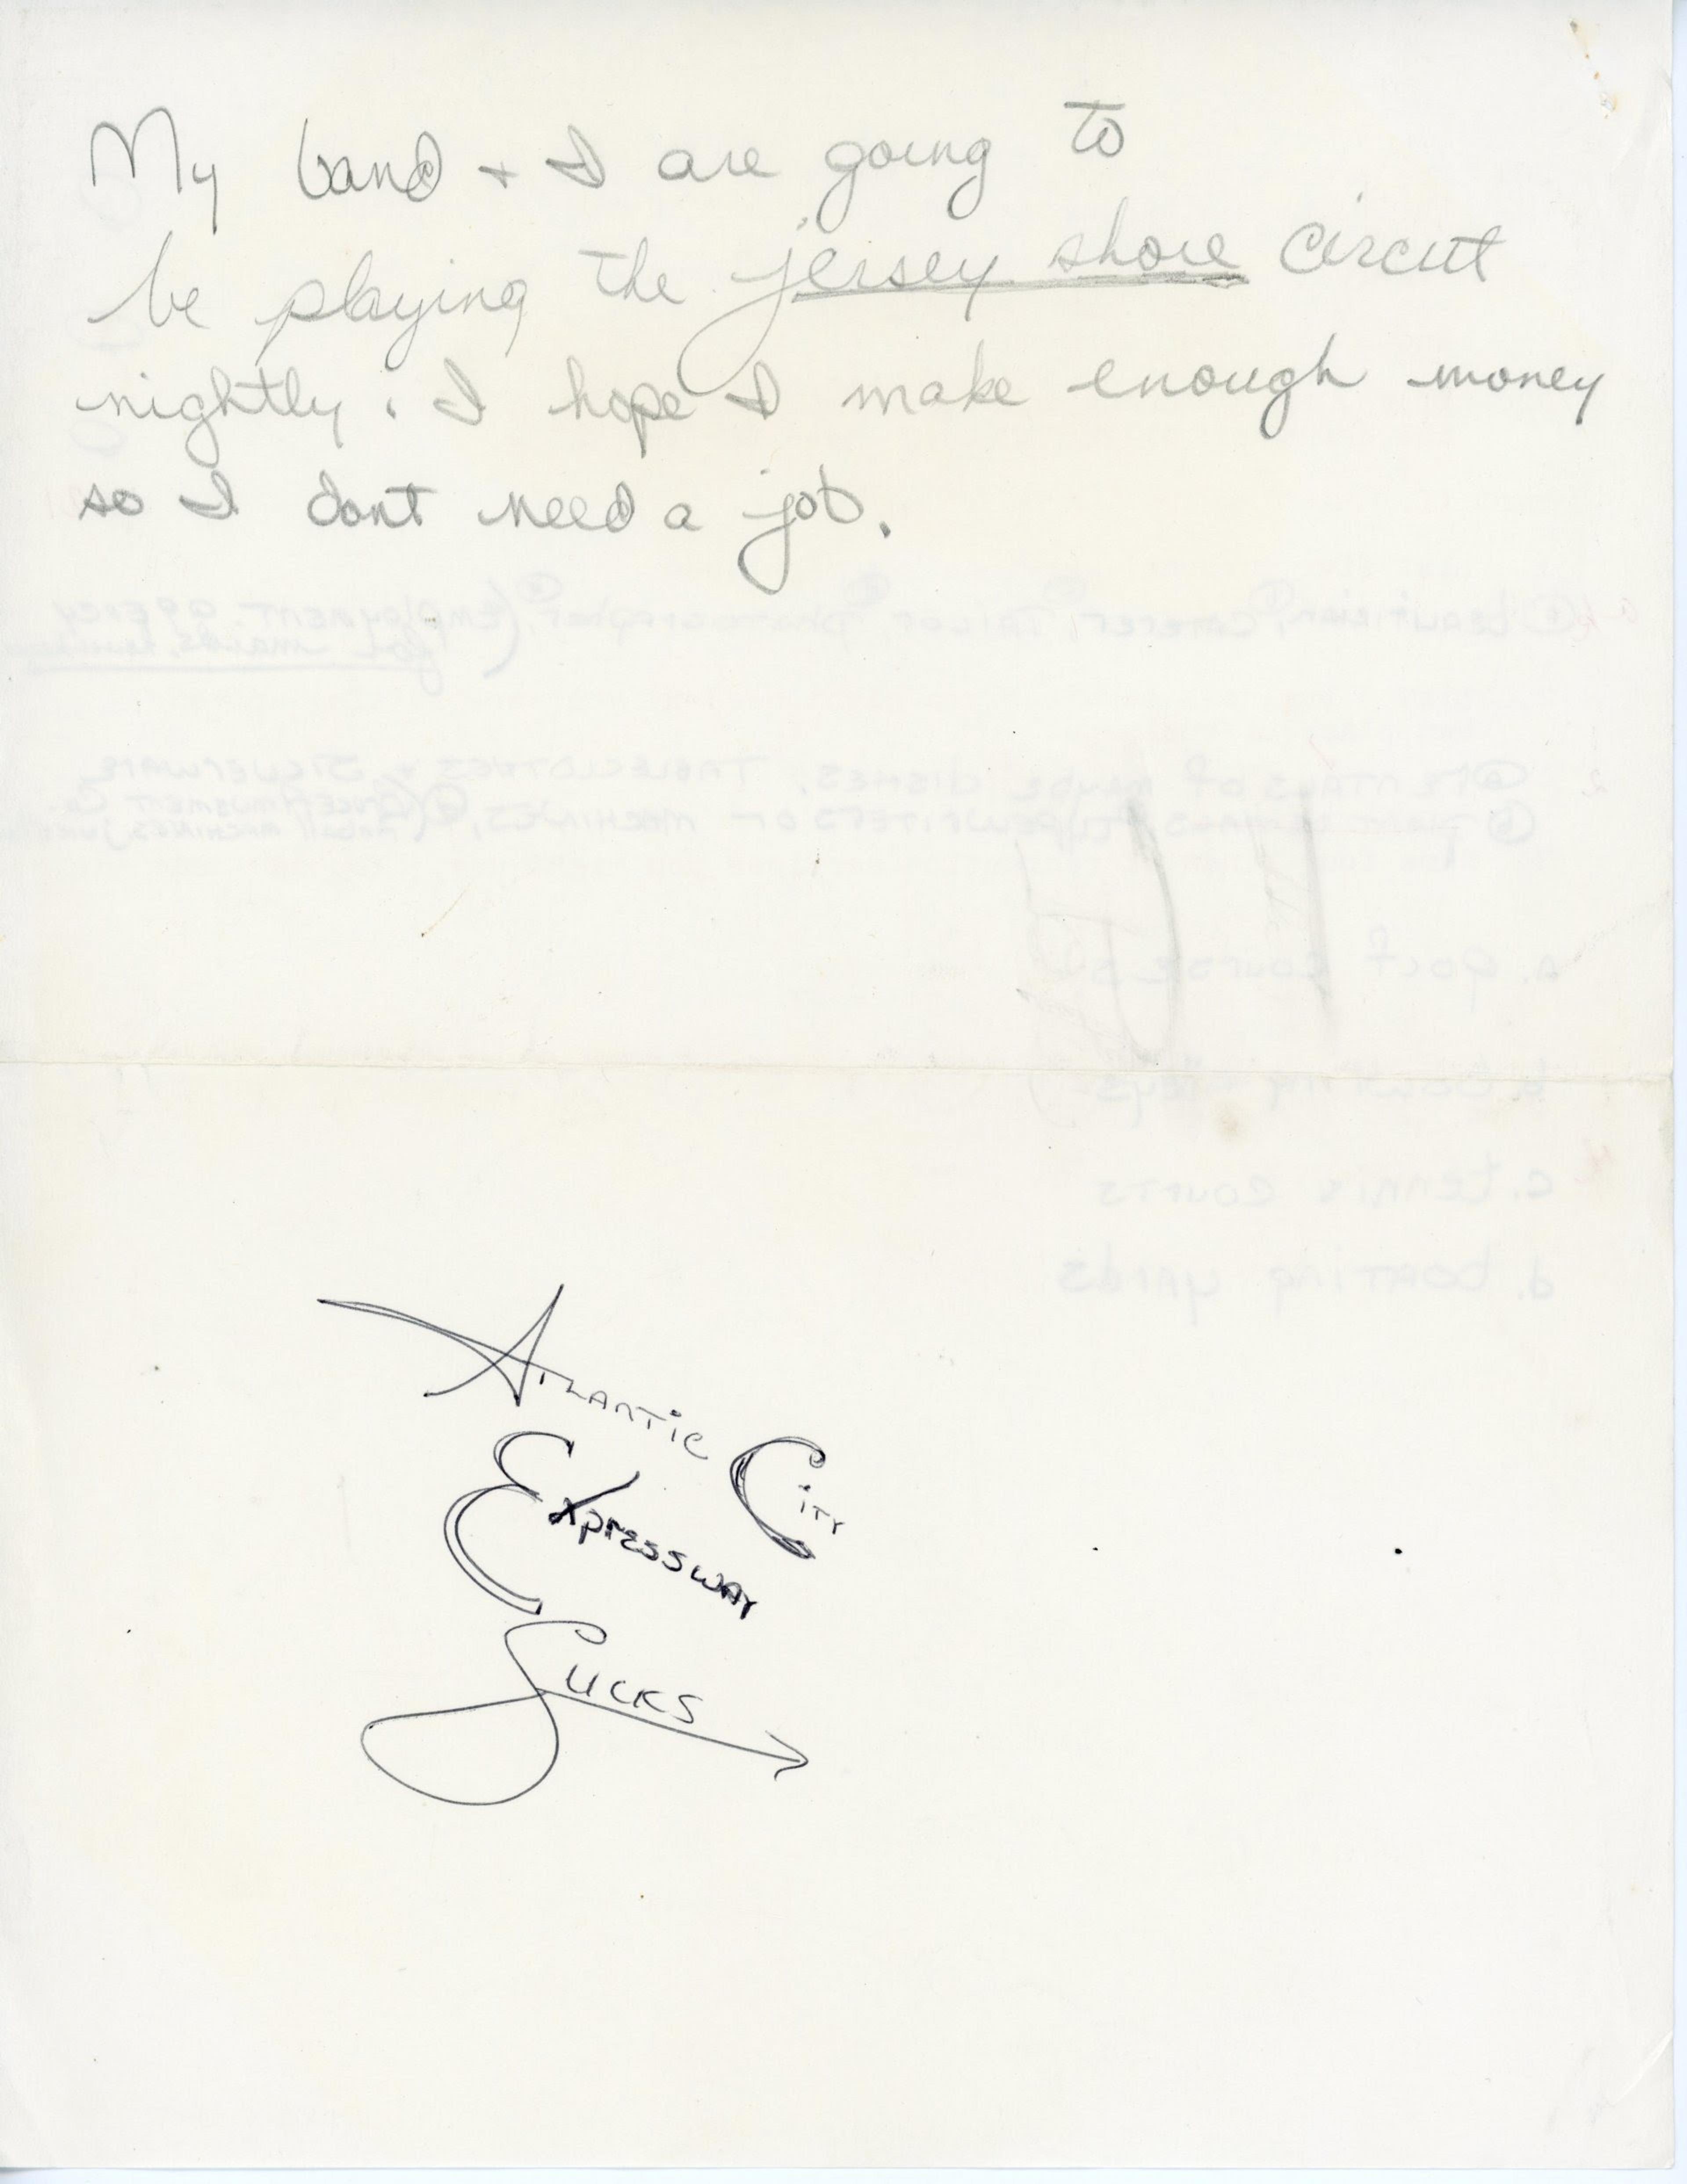 My band + I are going to
be playing the jersey shore circut
nightly. I hope I make enough money
so I dont need a job.
Atlantic City
Expressway
Sucks